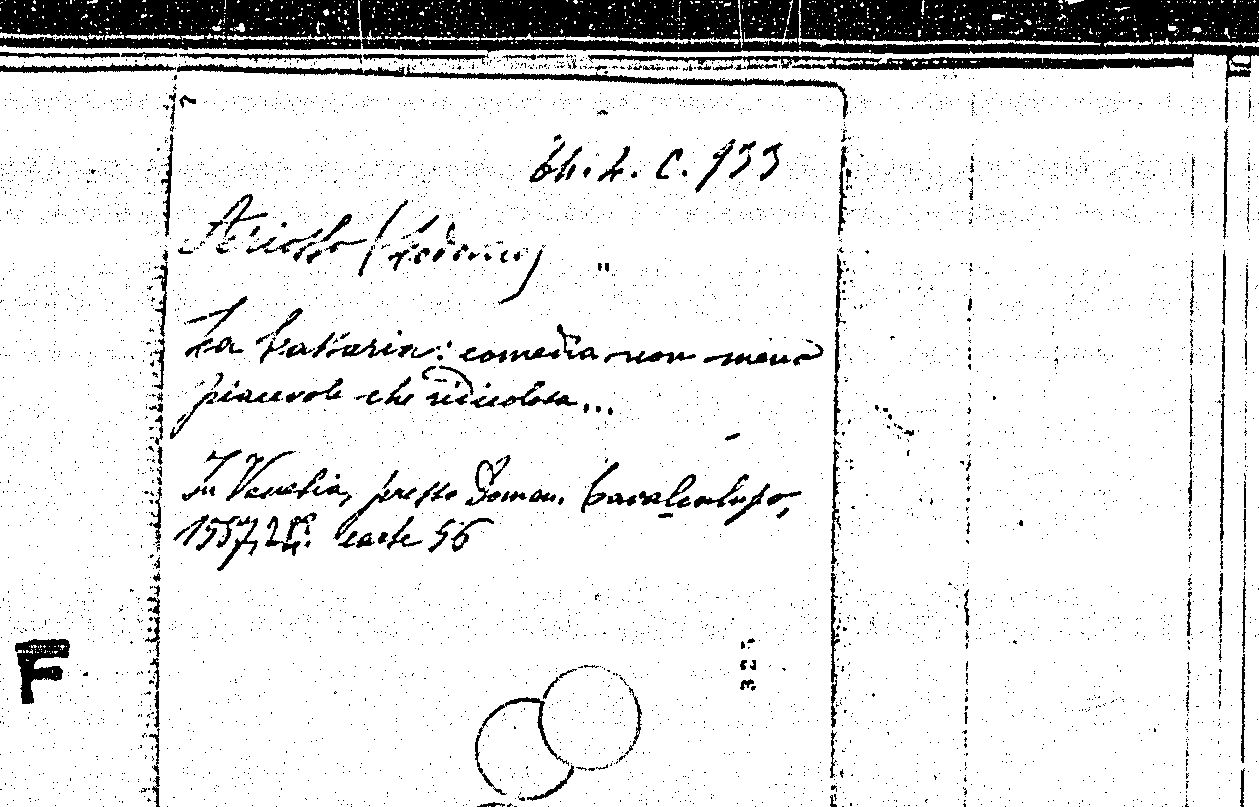 C. 933
Ariosto (Lodovico)
"
La Cassaria: comedia non meno
piacevole che ridicolosa...
In Venetia, presso Doman. Cavalcalupo,
1587, carte 56
F
327